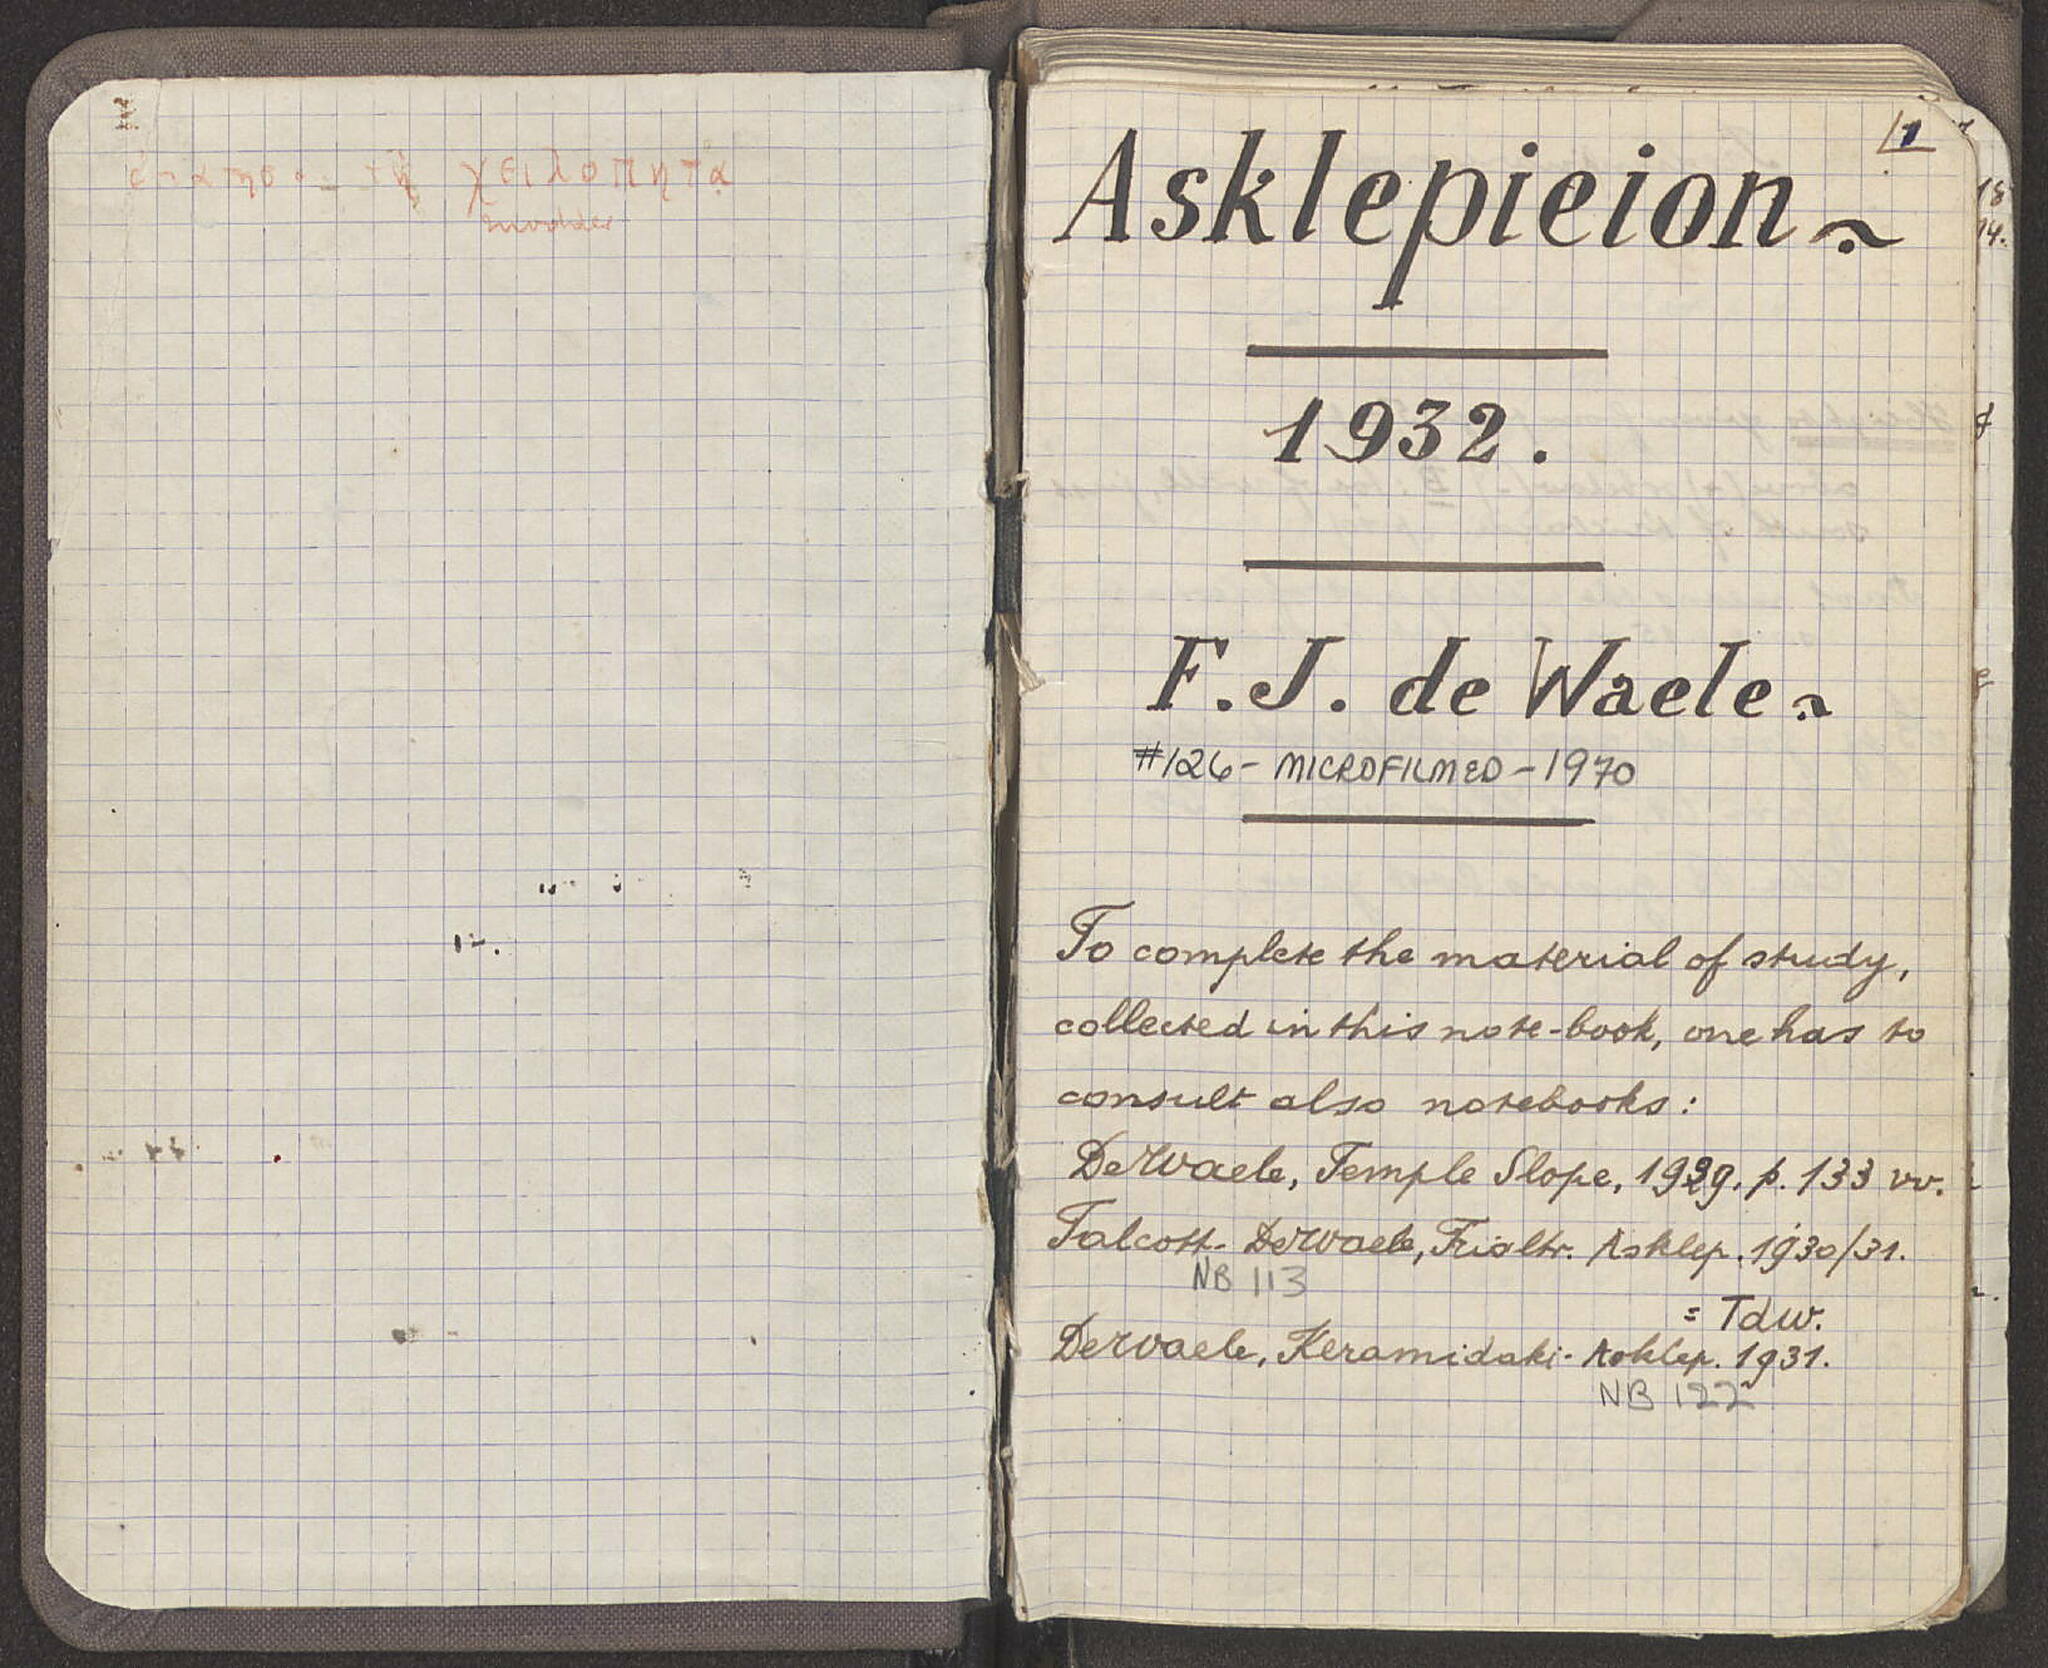 τῇ χειλοπητᾳ
modder
1
Asklepieion
1932.
F. J. de Waele
#126 - MICROFILMED - 1970
To complete the material of study,
collected in this note-book, one has to
consult also notebooks:
DeWaele, Temple Slope, 1929, p. 133 vv.
Talcott - DeWaele, Trialtr. Asklep. 1930/31.
NB 113
= Tdw.
DeWaele, Keramidaki - Asklep. 1931.
NB 122